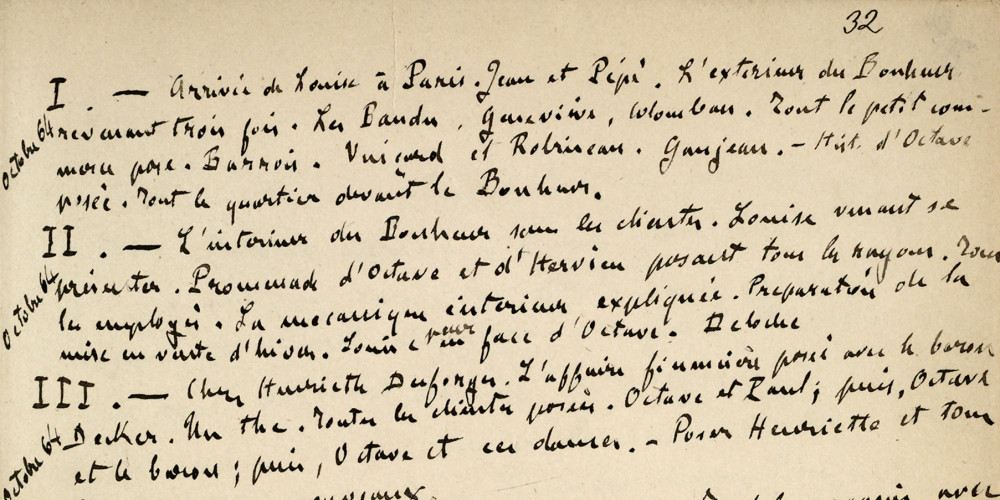 32
I. — Arrivée de Louise à Paris. Jean et Pépé. L'exterieur du Bonheur
Octobre 64
revenant trois fois. Les Baudu, Geneviève, Colomban. Tout le petit com-
merce posé. Bourrois. Vuicard et Robineau. Gaujean. — Hist. d'Octave
posée. Tout le quartier devant le Bonheur.
II. — L'interieur du Bonheur sans les clientes. Louise venant se
Octobre 64
présenter. Promenade d'Octave et d'Hervieu posant tous les rayons. Tous
les employés. La mecanique interieure expliquée. Preparation de la
mise en vente d'hiver. Louise pour face d'Octave. Deloche
III. — Chez Henriette Desforges. L'affaire financière posée avec le baron
Octobre 64
Decker. Un the. Toutes les clientes posées. Octave et Paul; puis, Octave
et le baron; puis, Octave et ces dames. — Poser Henriette et tous
avec